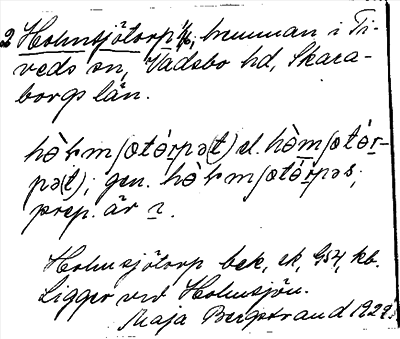 2 Holmsjötorp 1/16, hemman i Ti-
veds sn, Vadsbo hd, Skara-
borgs län.
hòlmʃøtórpə(t) el. hòmʃøtór-
pə(t); gen. hòlmʃøtórpəs;
prep. är ɪ.
Holmsjötorp bek, ek, GSA, kb.
Ligger vid Holmsjön.
Maja Bergstrand 1929.